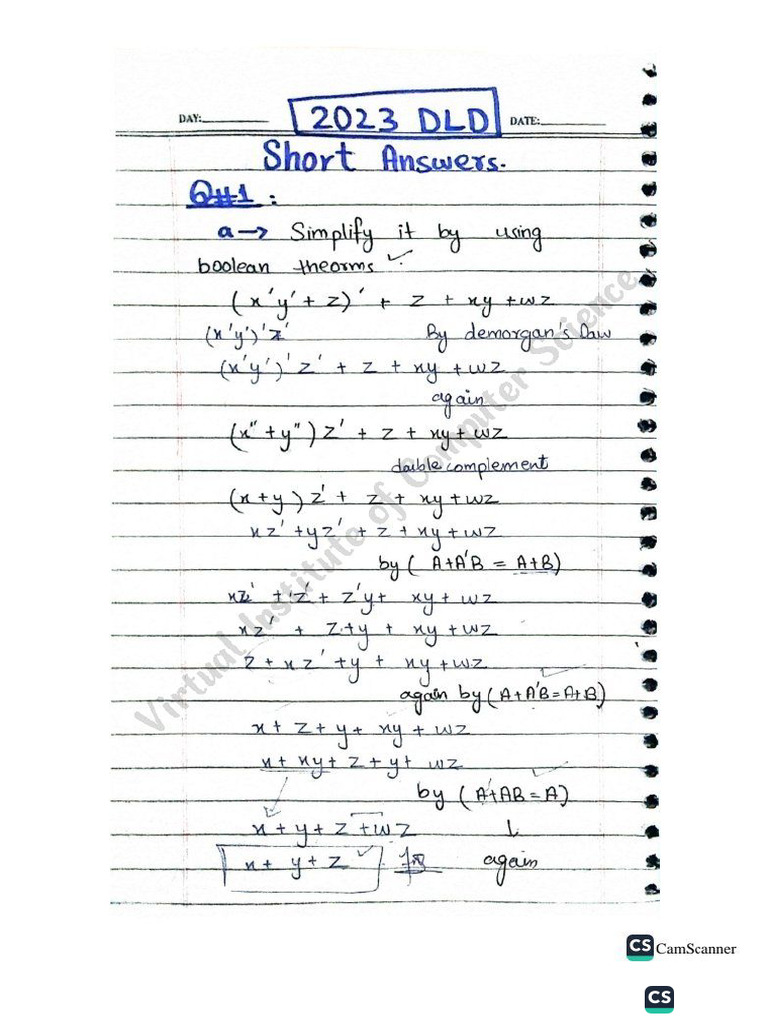 DAY:
2023 DLD
DATE:
Short Answers.
Q#1 :
a → Simplify it by using
boolean theorms
(x'y' + z)' + z + xy + wz
(x'y')'z' By demorgan's Law
(x'y')'z' + z + xy + wz
again
(x'' + y'') z' + z + xy + wz
double complement
(x + y) z' + z + xy + wz
xz' + yz' + z + xy + wz
by ( A+A'B = A+B)
xz' + z + z'y + xy + wz
xz' + z + y + xy + wz
z + xz' + y + xy + wz
again by (A+A'B=A+B)
x + z + y + xy + wz
x + xy + z + y + wz
by (A+AB = A)
x + y + z + wz
x + y + z again
Virtual Institute of Computer Science
CS CamScanner
CS